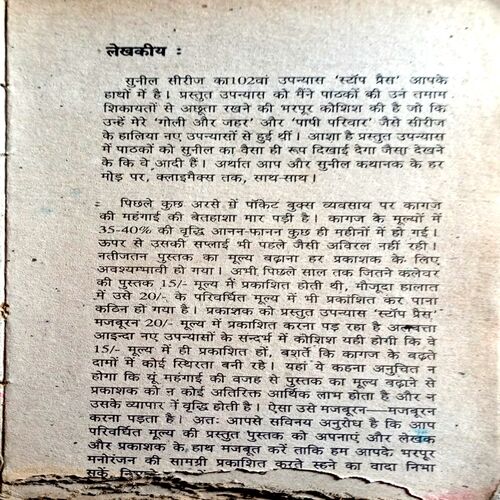 लेखकीय :
सुनील सीरीज का102वां उपन्यास 'स्टॉप प्रैस' आपके
हाथों में है। प्रस्तुत उपन्यास को मैंने पाठकों की उन तमाम
शिकायतों से अछूता रखने की भरपूर कोशिश की है जो कि
उन्हें मेरे 'गोली और जहर' और 'पापी परिवार' जैसे सीरीज
के हालिया नए उपन्यासों से हुई थीं। आशा है प्रस्तुत उपन्यास
में पाठकों को सुनील का वैसा ही रूप दिखाई देगा जैसा देखने
के कि वे आदी हैं। अर्थात आप और सुनील कथानक के हर
मोड़ पर, क्लाइमैक्स तक, साथ-साथ।
पिछले कुछ अरसे में पॉकेट बुक्स व्यवसाय पर कागज
की महंगाई की बेतहाशा मार पड़ी है। कागज के मूल्यों में
35-40% की वृद्धि आनन-फानन कुछ ही महीनों में हो गई।
ऊपर से उसकी सप्लाई भी पहले जैसी अविरल नहीं रही।
नतीजतन पुस्तक का मूल्य बढ़ाना हर प्रकाशक के लिए
अवश्यम्भावी हो गया। अभी पिछले साल तक जितने कलेवर
की पुस्तक 15/- मूल्य में प्रकाशित होती थी, मौजूदा हालात
में उसे 20/- के परिवर्धित मूल्य में भी प्रकाशित कर पाना
कठिन हो गया है। प्रकाशक को प्रस्तुत उपन्यास 'स्टॉप प्रैस'
मजबूरन 20/- मूल्य में प्रकाशित करना पड़ रहा है अलबत्ता
आइन्दा नए उपन्यासों के सन्दर्भ में कोशिश यही होगी कि वे
15/- मूल्य में ही प्रकाशित हों, बशर्ते कि कागज के बढ़ते
दामों में कोई स्थिरता बनी रहे। यहां ये कहना अनुचित न
होगा कि यूं महंगाई की वजह से पुस्तक का मूल्य बढ़ाने से
प्रकाशक को न कोई अतिरिक्त आर्थिक लाभ होता है और न
उसके व्यापार में वृद्धि होती है। ऐसा उसे मजबूरन—मजबूरन
करना पड़ता है। अतः आपसे सविनय अनुरोध है कि आप
परिवर्धित मूल्य की प्रस्तुत पुस्तक को अपनाएं और लेखक
और प्रकाशक के हाथ मजबूत करें ताकि हम आपके भरपूर
मनोरंजन की सामग्री प्रकाशित करते रहने का वादा निभा
सकें,